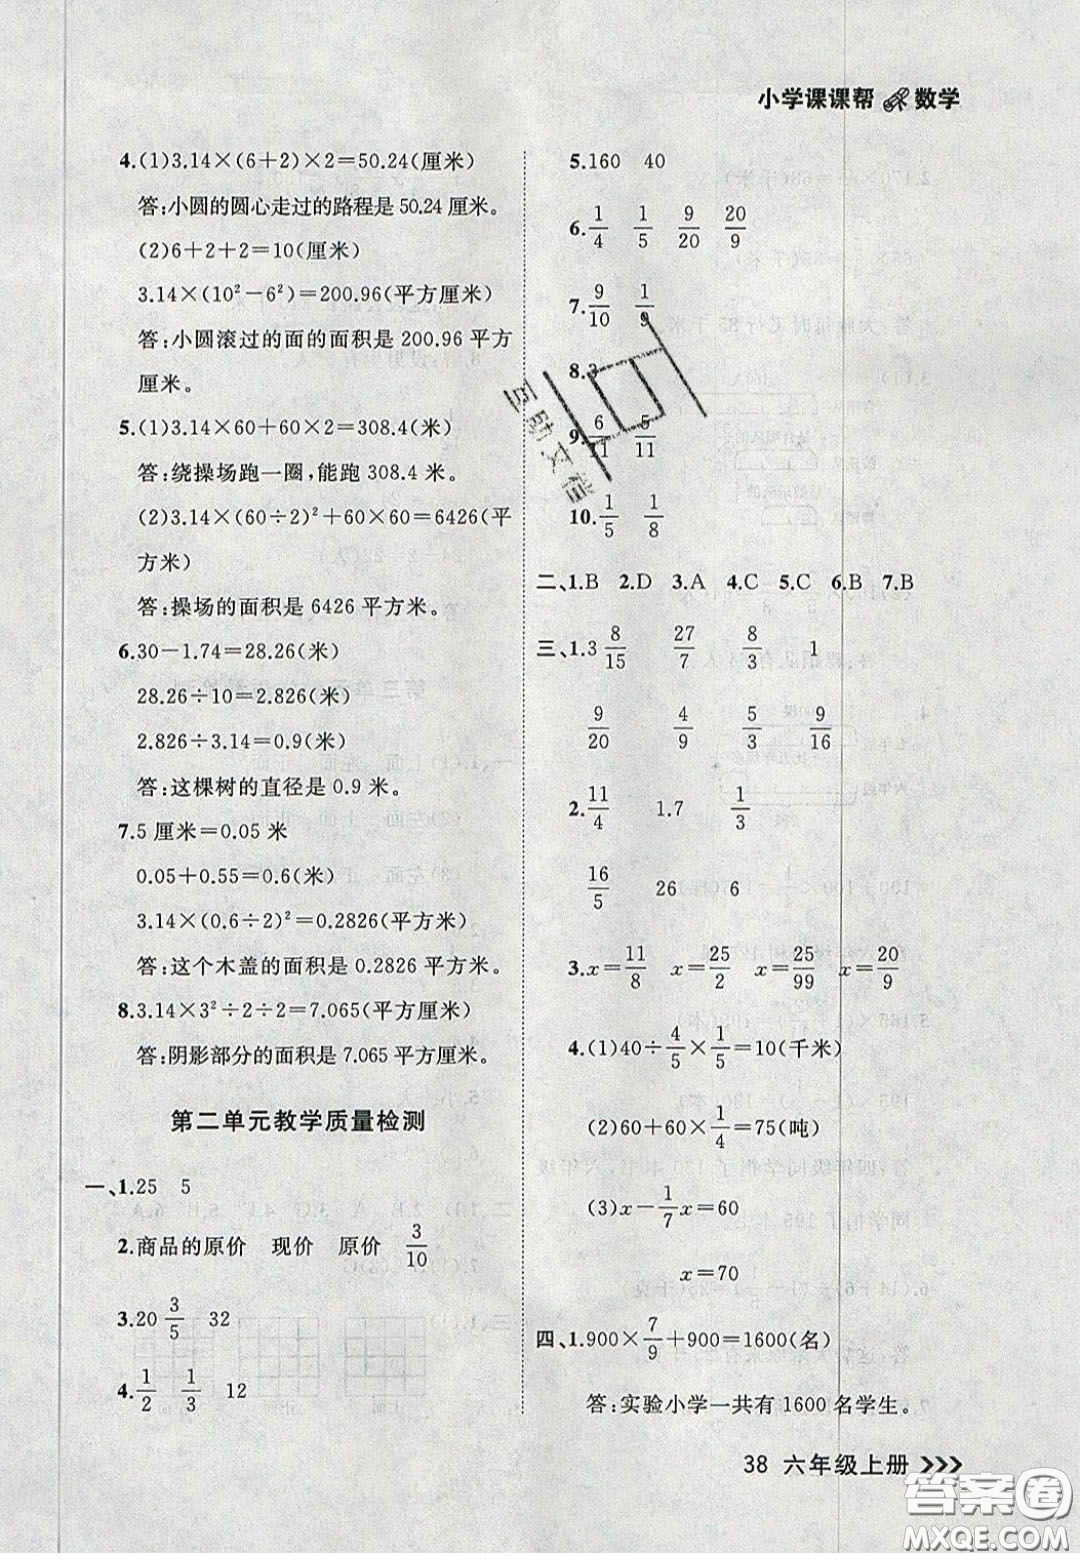 小学课课帮 数学
4.(1)3.14×(6+2)×2=50.24(厘米)
答:小圆的圆心走过的路程是 50.24 厘米。
(2)6+2+2=10(厘米)
3.14×(10²-6²)=200.96(平方厘米)
答:小圆滚过的面的面积是 200.96 平方
厘米。
5.(1)3.14×60+60×2=308.4(米)
答:绕操场跑一圈,能跑 308.4 米。
(2)3.14×(60÷2)²+60×60=6426(平
方米)
答:操场的面积是 6426 平方米。
6.30-1.74=28.26(米)
28.26÷10=2.826(米)
2.826÷3.14=0.9(米)
答:这棵树的直径是 0.9 米。
7.5 厘米=0.05 米
0.05+0.55=0.6(米)
3.14×(0.6÷2)²=0.2826(平方米)
答:这个木盖的面积是 0.2826 平方米。
8.3.14×3²÷2÷2=7.065(平方厘米)
答:阴影部分的面积是 7.065 平方厘米。
第二单元教学质量检测
一、1.25 5
2.商品的原价 现价 原价 3/10
3.20 3/5 32
4.1/2 1/3 12
5.160 40
6.1/4 1/5 9/20 20/9
7.9/10 1/9
8.3
9.6/11 5/11
10.1/5 1/8
二、1.B 2.D 3.A 4.C 5.C 6.B 7.B
三、1.3 8/15 27/7 8/3 1
9/20 4/9 5/3 9/16
2.11/4 1.7 1/3
16/5 26 6
3.x=11/8 x=25/2 x=25/99 x=20/9
4.(1)40÷4/5×1/5=10(千米)
(2)60+60×1/4=75(吨)
(3)x-1/7x=60
x=70
四、1.900×7/9+900=1600(名)
答:实验小学一共有 1600 名学生。
38 六年级上册
互助文档
答案圈
MXQE.COM